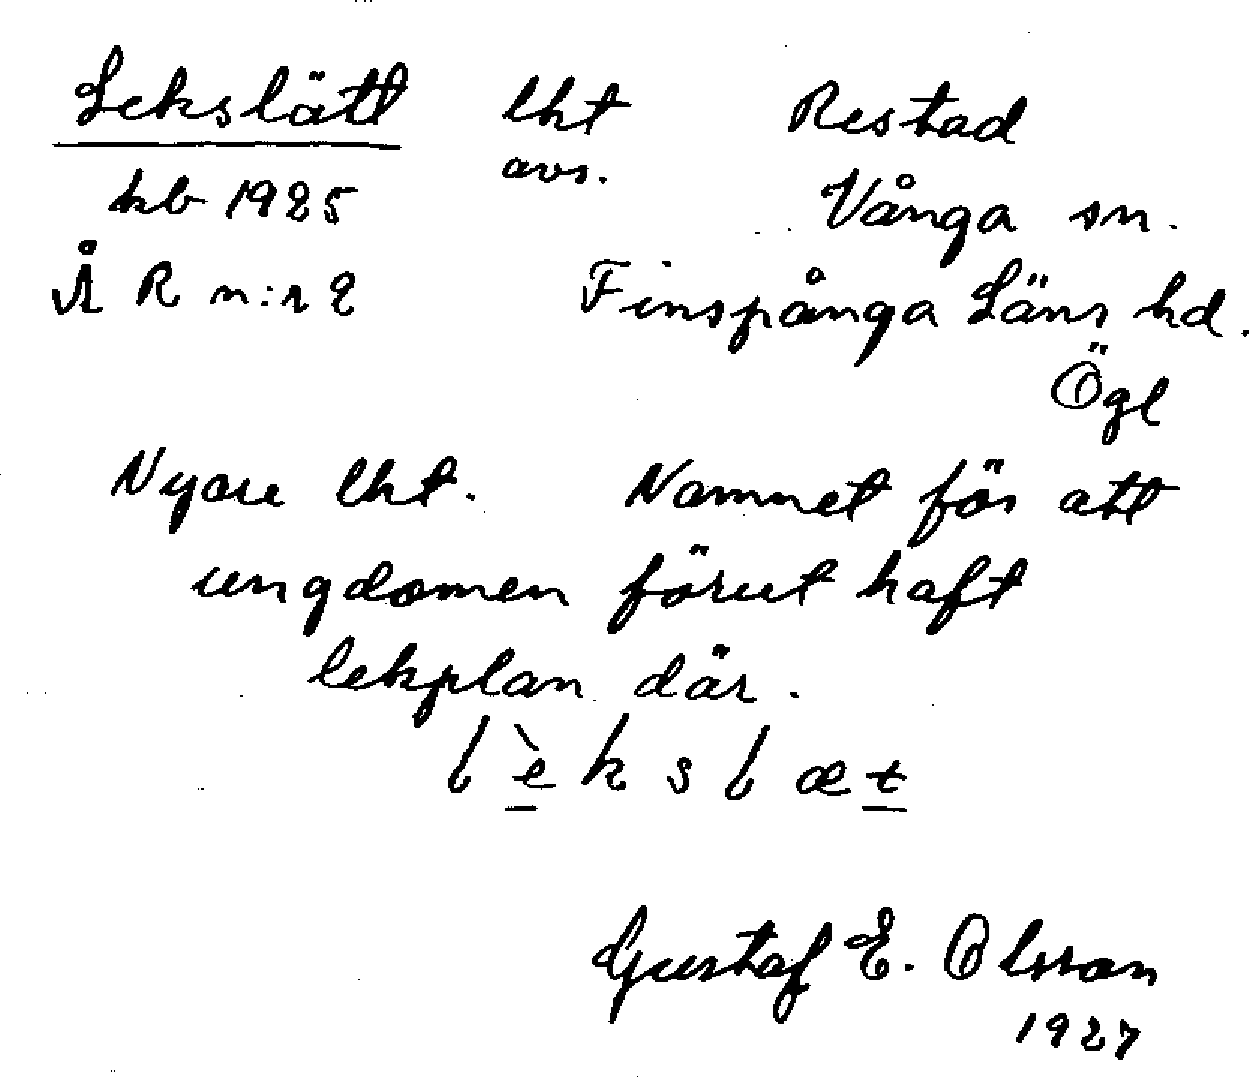 Lekslätt lht Restad
avs.
kb 1925 Vånga sn.
ÅR n:r 2 Finspånga Läns hd.
Ögl
Nyare lht. Namnet för att
ungdomen förut haft
lekplan där.
lèkslæt
Gustaf E. Olsson
1927